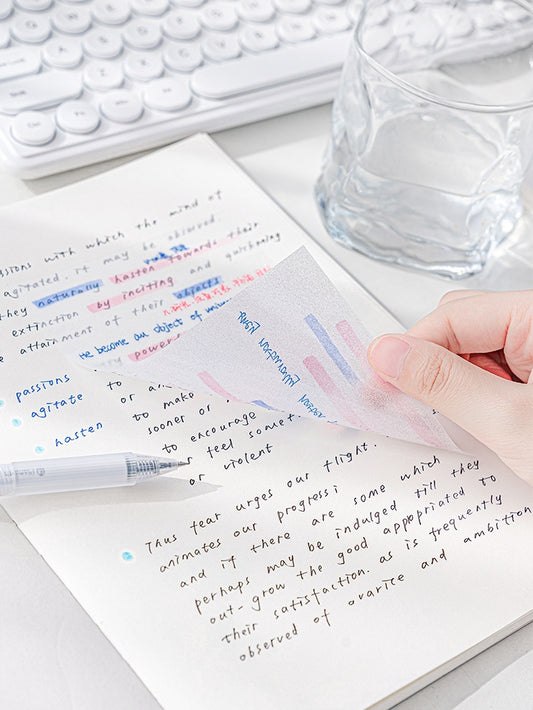 ssions with which the mind of
agitated. it may be observed.
they naturally hasten towards their
extinction by inciting and quickening
e attainment of their objects
He become an object of
power
passions
agitate
hasten
to
or an
to make
sooner or
to encourage
or feel somet
or violent
Thus fear urges our flight.
animates our progress;
and if there are some which
perhaps may be indulged till they
out-grow the good appropriated to
their satisfaction. as is frequently
observed of avarice and ambition